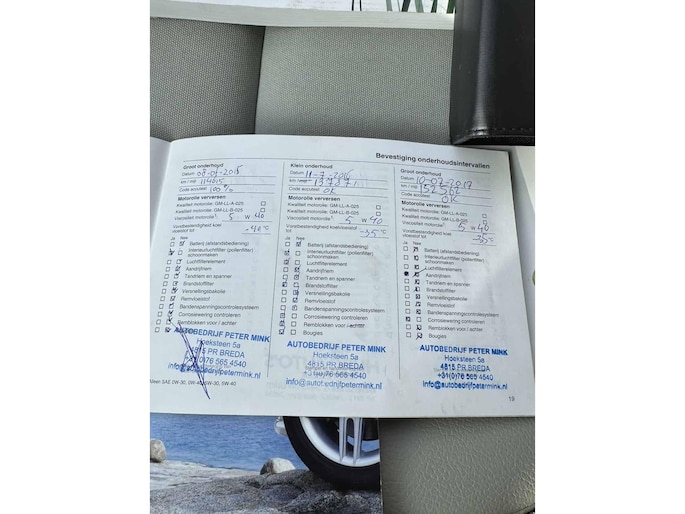 Bevestiging onderhoudsintervallen
Groot onderhoud
Datum
km / mijl 114015
Code accutest 100 %
Motorolie verversen
Kwaliteit motorolie: GM-LL-A-025
Kwaliteit motorolie: GM-LL-B-025
Viscositeit motorolie¹: 5 W 40
Vorstbestendigheid koel-
vloeistof tot
Ja Nee
Batterij (afstandsbediening)
Interieurluchtfilter (pollenfilter)
schoonmaken
Luchtfilterelement
Aandrijfriem
Tandriem en spanner
Brandstoffilter
Versnellingsbakolie
Remvloeistof
Bandenspanningscontrolesysteem
Corrosiewering controleren
Remblokken voor / achter
AUTOBEDRIJF PETER MINK
Hoeksteen 5a
4815 PR BREDA
+31(0)76 565 4540
info@autobedrijfpetermink.nl
Klein onderhoud
Datum 11-7-2016
km / mijl 137871
Code accutest OK
Motorolie verversen
Kwaliteit motorolie: GM-LL-A-025
Kwaliteit motorolie: GM-LL-B-025
Viscositeit motorolie¹: 5 W 40
Vorstbestendigheid koelvloeistof
tot -35°C
Ja Nee
Batterij (afstandsbediening)
Interieurluchtfilter (pollenfilter)
schoonmaken
Luchtfilterelement
Aandrijfriem
Tandriem en spanner
Brandstoffilter
Versnellingsbakolie
Remvloeistof
Bandenspanningscontrolesysteem
Corrosiewering controleren
Remblokken voor / achter
Bougies
AUTOBEDRIJF PETER MINK
Hoeksteen 5a
4815 PR BREDA
+31(0)76 565 4540
info@autobedrijfpetermink.nl
Groot onderhoud
Datum 10-02-2017
km / mijl 152562
Code accutest OK
Motorolie verversen
Kwaliteit motorolie: GM-LL-A-025
Kwaliteit motorolie: GM-LL-B-025
Viscositeit motorolie¹: 5 W 40
Vorstbestendigheid koel-
vloeistof tot -35°C
Ja Nee
Batterij (afstandsbediening)
Interieurluchtfilter (pollenfilter)
schoonmaken
Luchtfilterelement
Aandrijfriem
Tandriem en spanner
Brandstoffilter
Versnellingsbakolie
Remvloeistof
Bandenspanningscontrolesysteem
Corrosiewering controleren
Remblokken voor / achter
Bougies
AUTOBEDRIJF PETER MINK
Hoeksteen 5a
4815 PR BREDA
+31(0)76 565 4540
info@autobedrijfpetermink.nl
SAE 0W-30, 0W-40, 5W-30, 5W-40
19